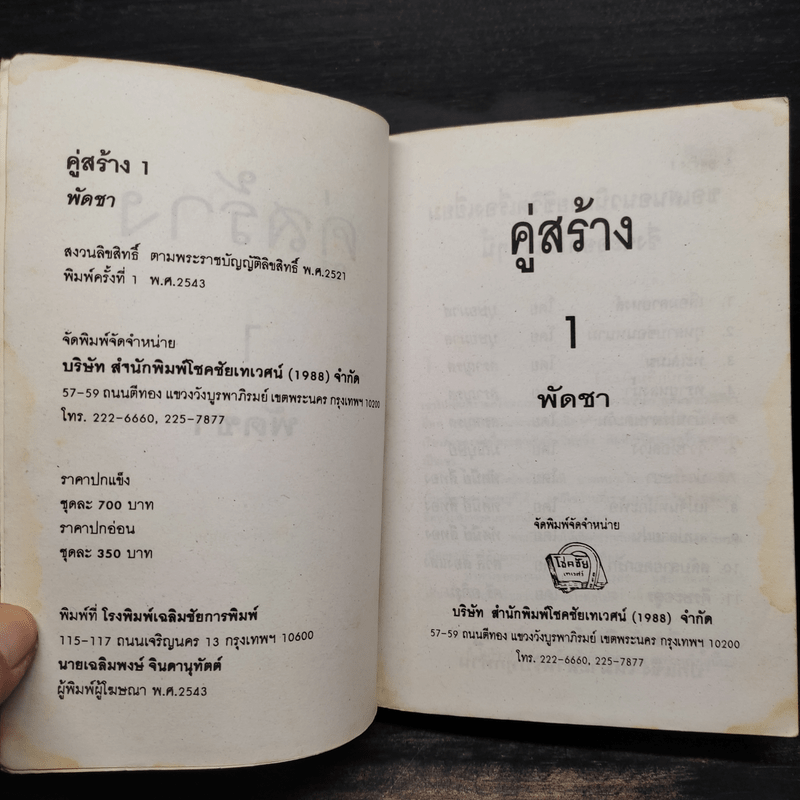 คู่สร้าง 1
พัดชา
สงวนลิขสิทธิ์ ตามพระราชบัญญัติลิขสิทธิ์ พ.ศ.2521
พิมพ์ครั้งที่ 1 พ.ศ.2543
จัดพิมพ์จัดจำหน่าย
บริษัท สำนักพิมพ์โชคชัยเทเวศน์ (1988) จำกัด
57-59 ถนนตีทอง แขวงวังบูรพาภิรมย์ เขตพระนคร กรุงเทพฯ 10200
โทร. 222-6660, 225-7877
ราคาปกแข็ง
ชุดละ 700 บาท
ราคาปกอ่อน
ชุดละ 350 บาท
พิมพ์ที่ โรงพิมพ์เฉลิมชัยการพิมพ์
115-117 ถนนเจริญนคร 13 กรุงเทพฯ 10600
นายเฉลิมพงษ์ จินดานุทัตต์
ผู้พิมพ์ผู้โฆษณา พ.ศ.2543
คู่สร้าง
1
พัดชา
จัดพิมพ์จัดจำหน่าย
โชคชัย
เทเวศร์
บริษัท สำนักพิมพ์โชคชัยเทเวศน์ (1988) จำกัด
57-59 ถนนตีทอง แขวงวังบูรพาภิรมย์ เขตพระนคร กรุงเทพฯ 10200
โทร. 222-6660, 225-7877